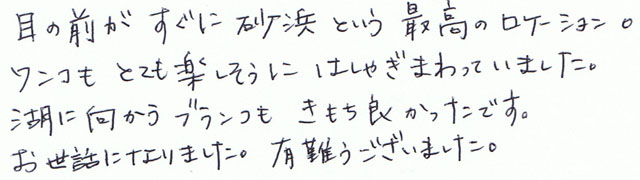 目の前が すぐに 砂浜 という 最高の ロケーション。
ワンコも とても 楽しそうに はしゃぎまわっていました。
湖に 向かう ブランコも きもち良かったです。
お世話になりました。有難うございました。